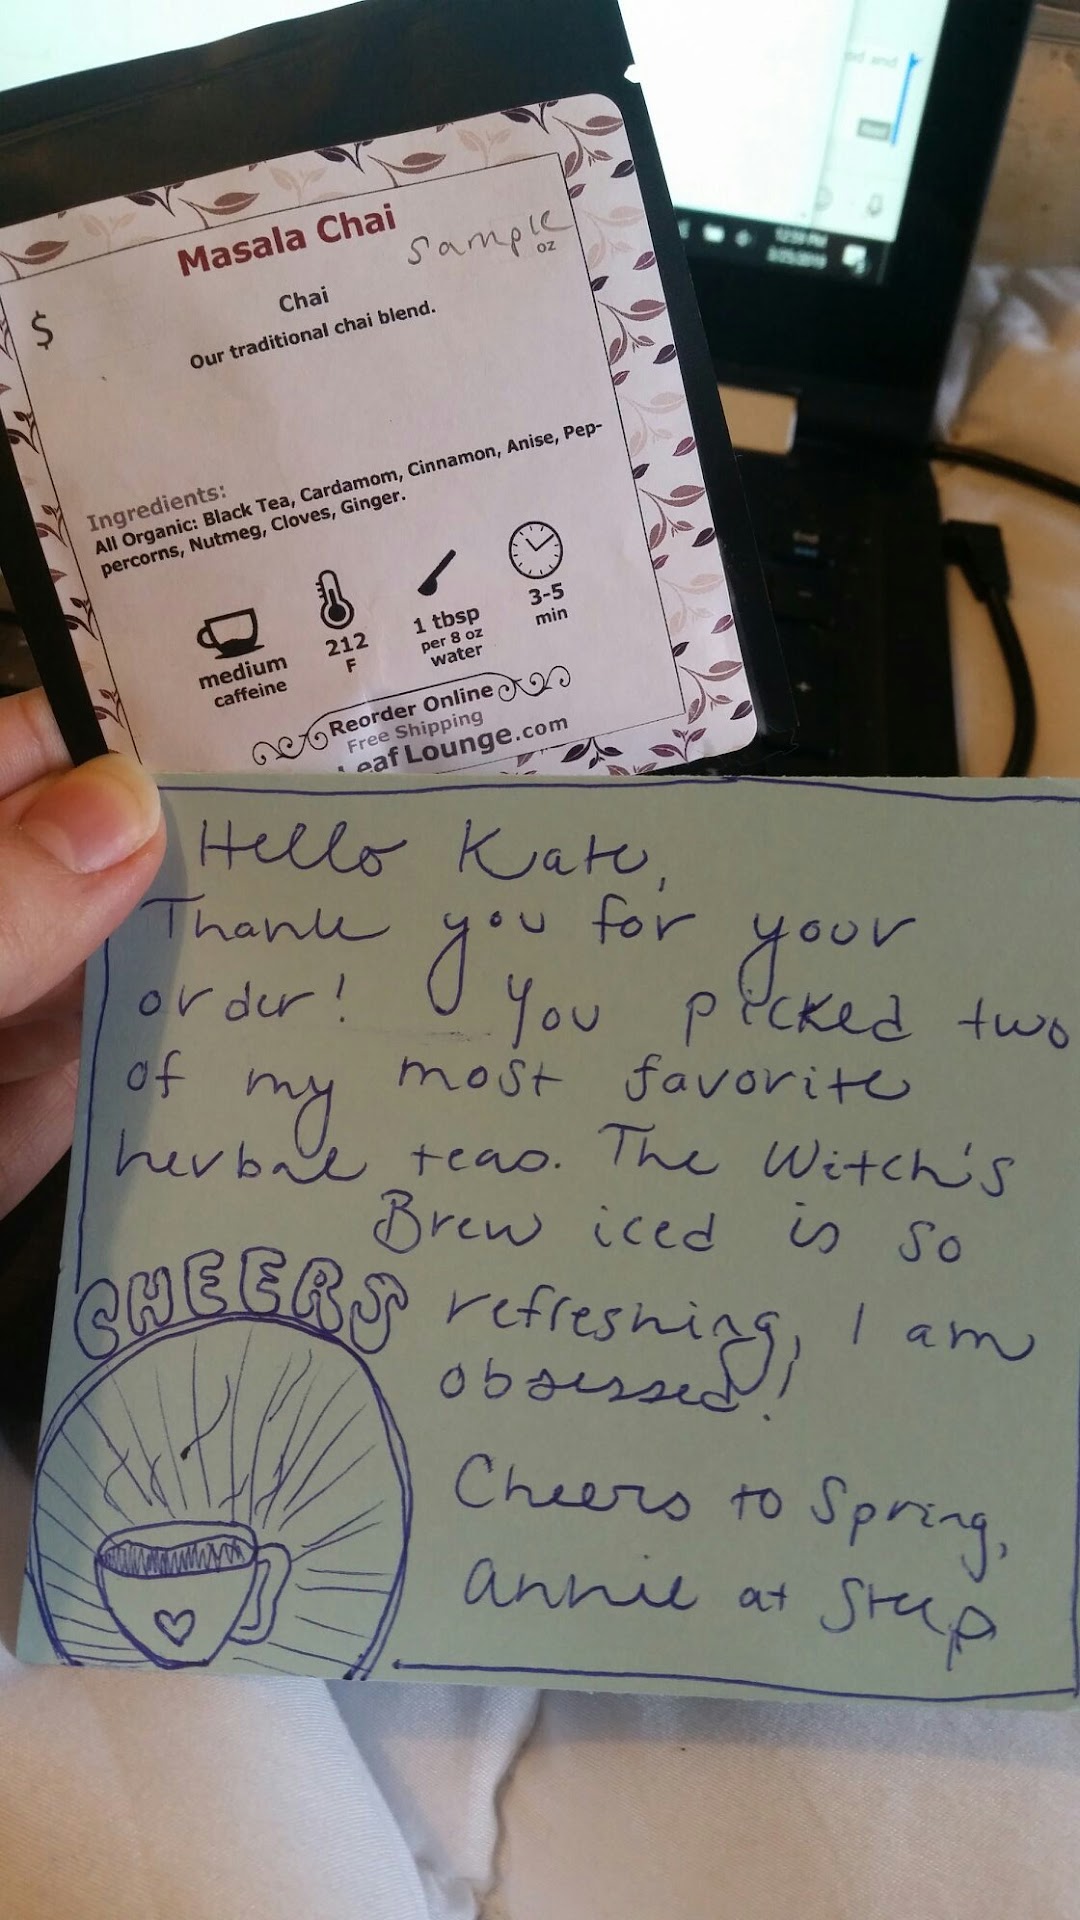 Masala Chai
Sample
oz
$
Chai
Our traditional chai blend.
Ingredients:
All Organic: Black Tea, Cardamom, Cinnamon, Anise, Pep-
percorns, Nutmeg, Cloves, Ginger.
medium
caffeine
212
F
1 tbsp
per 8 oz
water
3-5
min
Reorder Online
Free Shipping
Leaf Lounge.com
Hello Kate,
Thank you for your
order! You picked two
of my most favorite
herbal teas. The Witch's
Brew iced is so
refreshing, I am
obsessed!
CHEERS
Cheers to Spring,
Annie at Steep